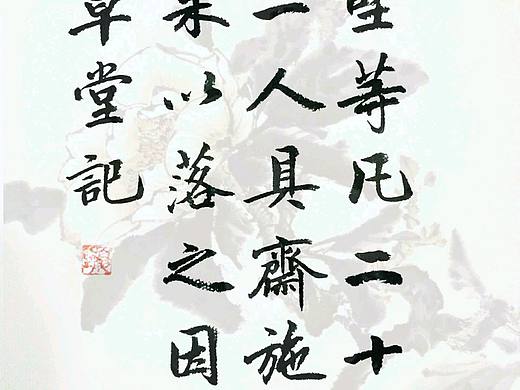 等凡二十
一人具齋施
以落之因
草堂記